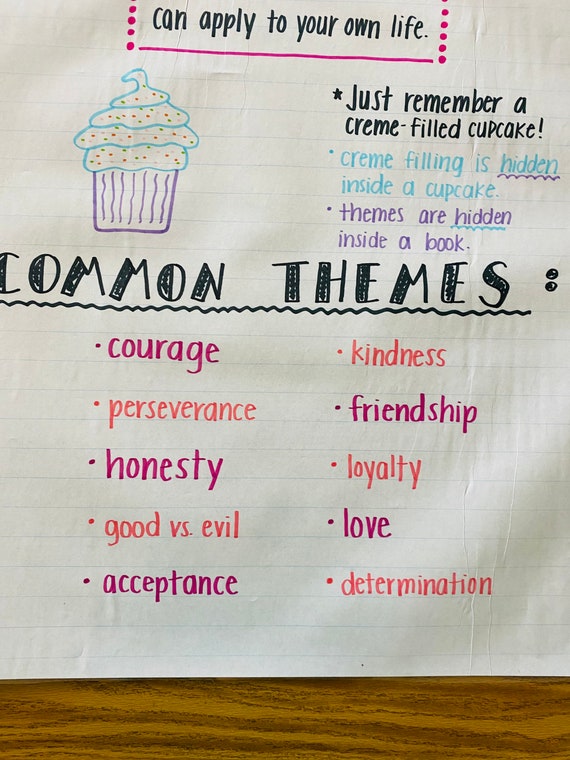 can apply to your own life.
* Just remember a
creme-filled cupcake!
• creme filling is hidden
inside a cupcake.
• themes are hidden
inside a book.
COMMON THEMES:
• courage
• kindness
• perseverance
• friendship
• honesty
• loyalty
• good vs. evil
• love
• acceptance
• determination